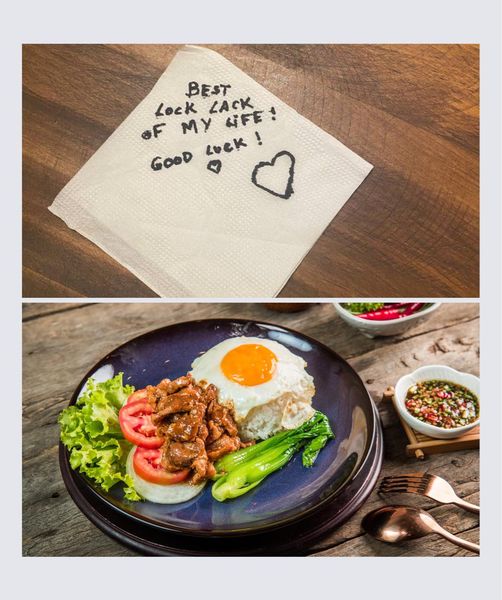 BEST
LOCK LACK
OF MY LIFE!
GOOD LUCK!